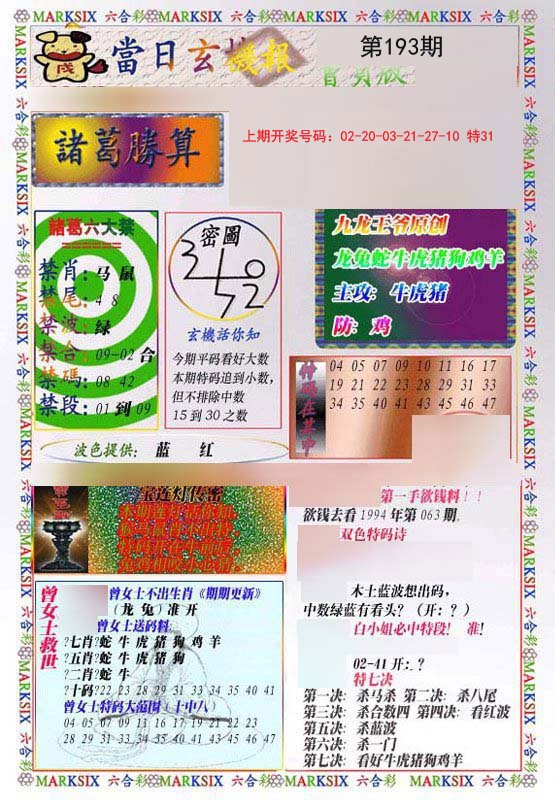 MARKSIX 六合彩 MARKSIX 六合彩 MARKSIX 六合彩 MARKSIX 六合彩
當日玄機報
第193期
諸葛勝算
上期开奖号码：02-20-03-21-27-10 特31
諸葛六大禁
禁肖：马 鼠
禁尾：4 8
禁波：绿
禁合：09-02 合
禁碼：08 42
禁段：01 到 09
密圖
玄機話你知
今期平码看好大数
本期特码追到小数，
但不排除中数
15 到 30 之数
九龙王爷原创
龙兔蛇牛虎猪狗鸡羊
主攻：牛虎猪
防：鸡
特碼在其中
04 05 07 09 10 11 16 17
19 21 22 23 28 29 31 33
34 35 40 41 43 45 46 47
波色提供：蓝 红
宝莲灯传密
第一手欲钱料！！
欲钱去看 1994 年第 063 期.
双色特码诗
木土蓝波想出码，
中数绿蓝有看头？（开：？）
白小姐必中特段！ 准！
02-41 开：？
特七决
第一决：杀马杀 第二决：杀八尾
第三决：杀合数四 第四决：看红波
第五决：杀蓝波
第六决：杀一门
第七决：看好牛虎猪狗鸡羊
曾女士救世
曾女士不出生肖《期期更新》
（龙 兔）准 开
曾女士送码料
?七肖?蛇 牛 虎 猪 狗 鸡 羊
?五肖?蛇 牛 虎 猪 狗
?二肖?蛇 牛
?十码?22 23 28 29 31 33 34 35 40 41
曾女士特码大范围（十中八）
04 05 07 09 10 11 16 17 19 21 22 23
28 29 31 33 34 35 40 41 43 45 46 47
MARKSIX 六合彩 MARKSIX 六合彩 MARKSIX 六合彩 MARKSIX 六合彩